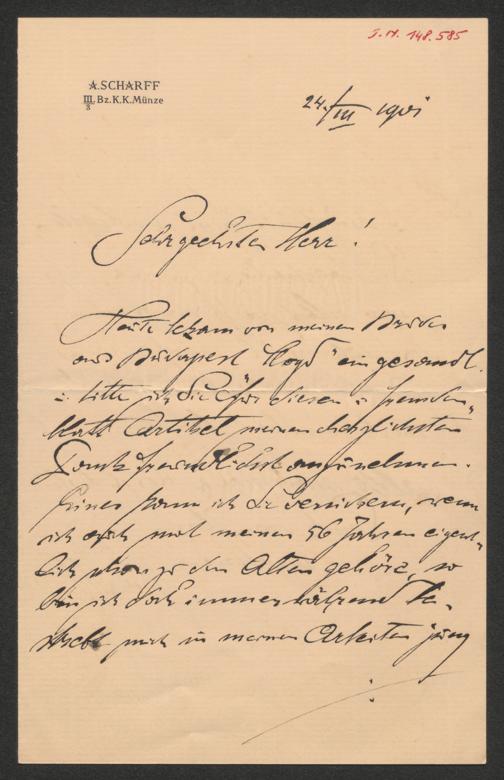 I.N. 148.585
A.SCHARFF
III/3 Bz.K.K.Münze
24./III 1901
Sehrgeehrter Herr!
Heute bekam von meinem Bruder
aus Budapest Lloyd" eingesandt.
u bitte ich Sie für diesen u Fremden"
blatt Artikel meinen herzlichsten
Dank freundlichst anzunehmen.
Eines kann ich Sie versichern, wenn
ich auch mit meinen 56 Jahren eigent-
lich schon zu den Alten gehöre, so
bin ich doch immerwährend be-
strebt mich in meinen Arbeiten jung